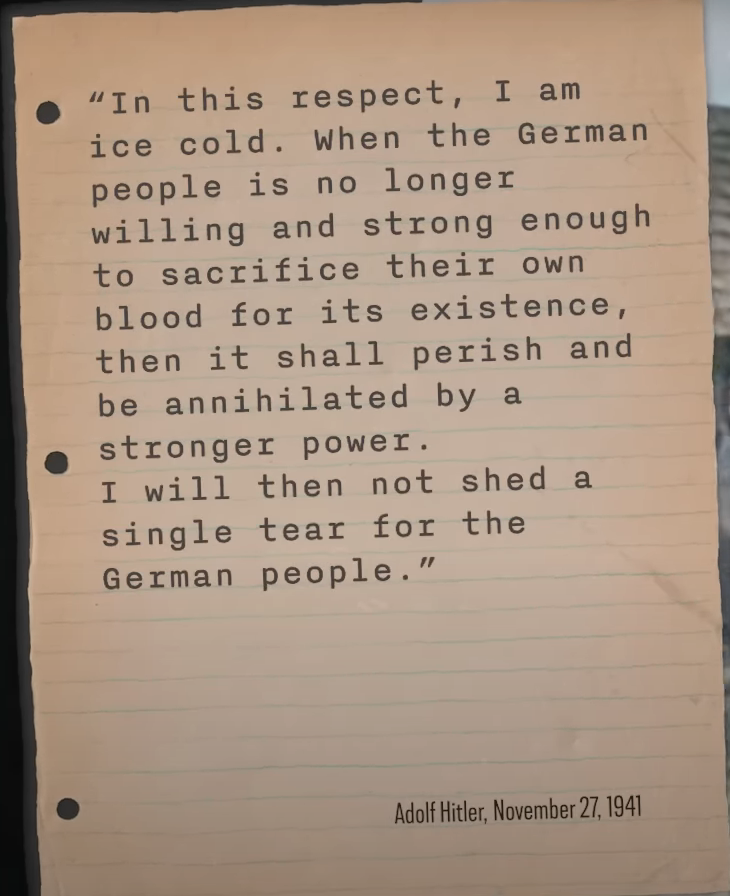 “In this respect, I am
ice cold. When the German
people is no longer
willing and strong enough
to sacrifice their own
blood for its existence,
then it shall perish and
be annihilated by a
stronger power.
I will then not shed a
single tear for the
German people.”
Adolf Hitler, November 27, 1941